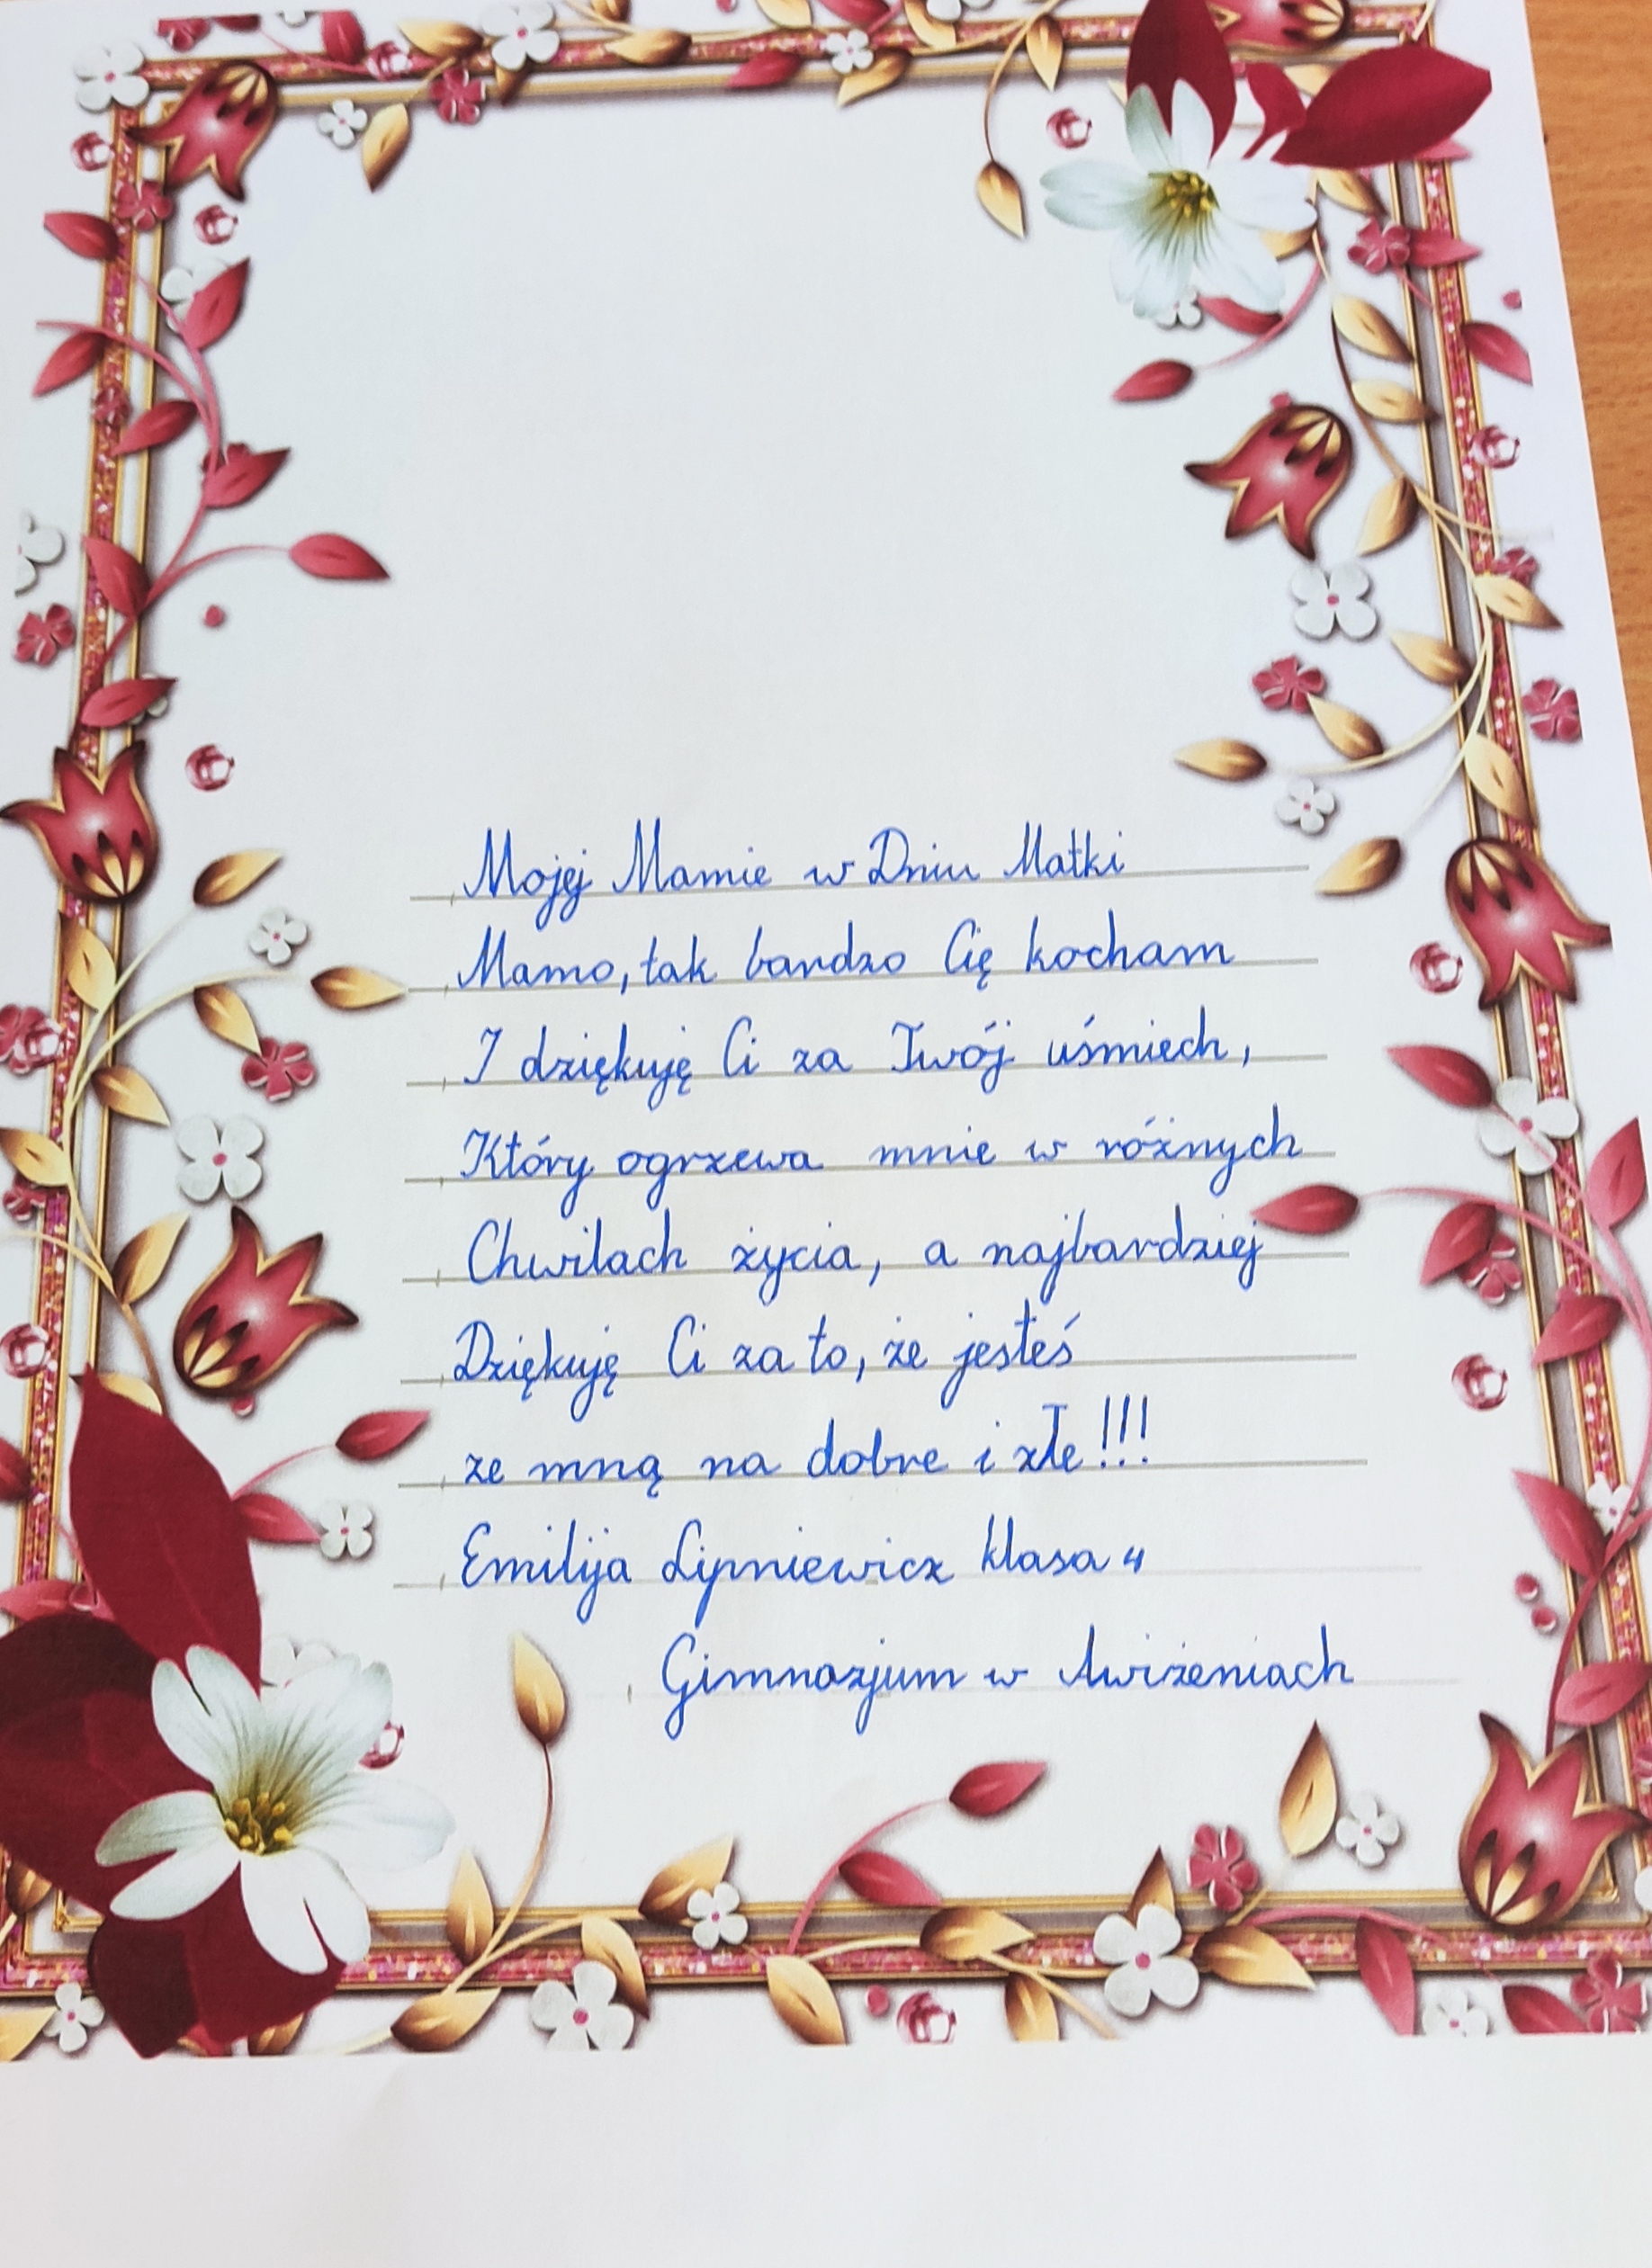 Mojej Mamie w Dniu Matki
Mamo, tak bardzo Cię kocham
I dziękuję Ci za Twój uśmiech,
Który ogrzewa mnie w różnych
Chwilach życia, a najbardziej
Dziękuję Ci za to, że jesteś
ze mną na dobre i złe!!!
Emilija Lipniewicz klasa 4
Gimnazjum w Awiżeniach